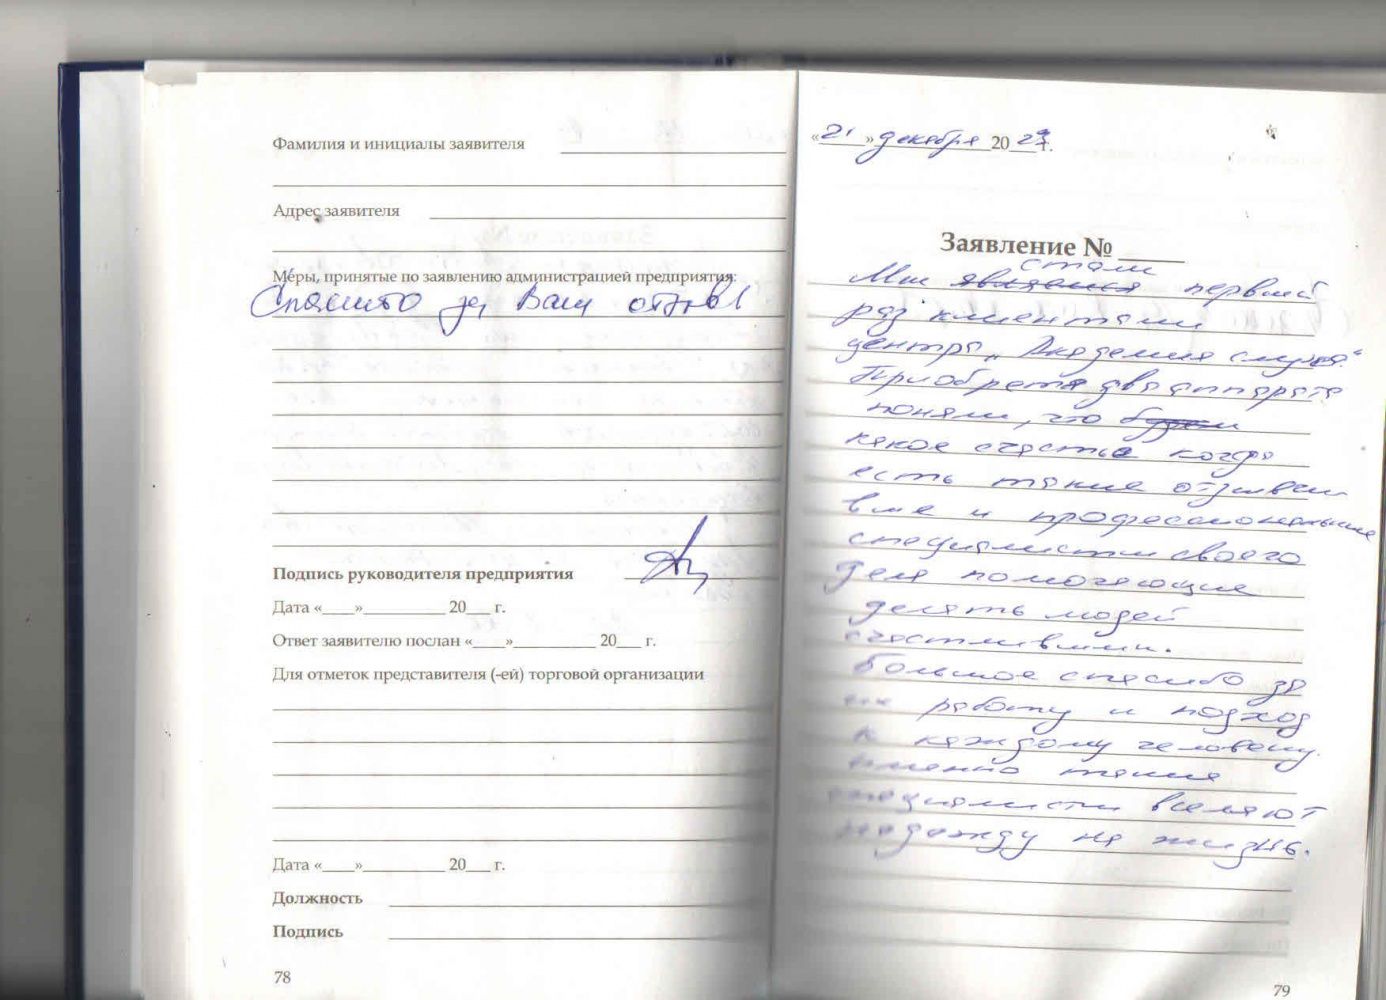 Фамилия и инициалы заявителя
Адрес заявителя
Меры, принятые по заявлению администрацией предприятия:
Спасибо за Ваш отзыв!
Подпись руководителя предприятия
Дата «___»__________ 20___ г.
Ответ заявителю послан «____»__________ 20___ г.
Для отметок представителя (-ей) торговой организации
Дата «____»__________ 20___ г.
Должность
Подпись
78
«21» декабря 20 г.
Заявление № _____
стали
Мы являемся первый
раз клиентами
центра „Академия слуха"
Приобретя два аппарата
поняли, что
какое счастье когда
есть такие отзывчи
вые и профессиональные
специалисты своего
дела помогающие
делать людей
счастливыми.
Большое спасибо за
их работу и подход
к каждому человеку.
именно такие
специалисты вселяют
надежду на жизнь.
79